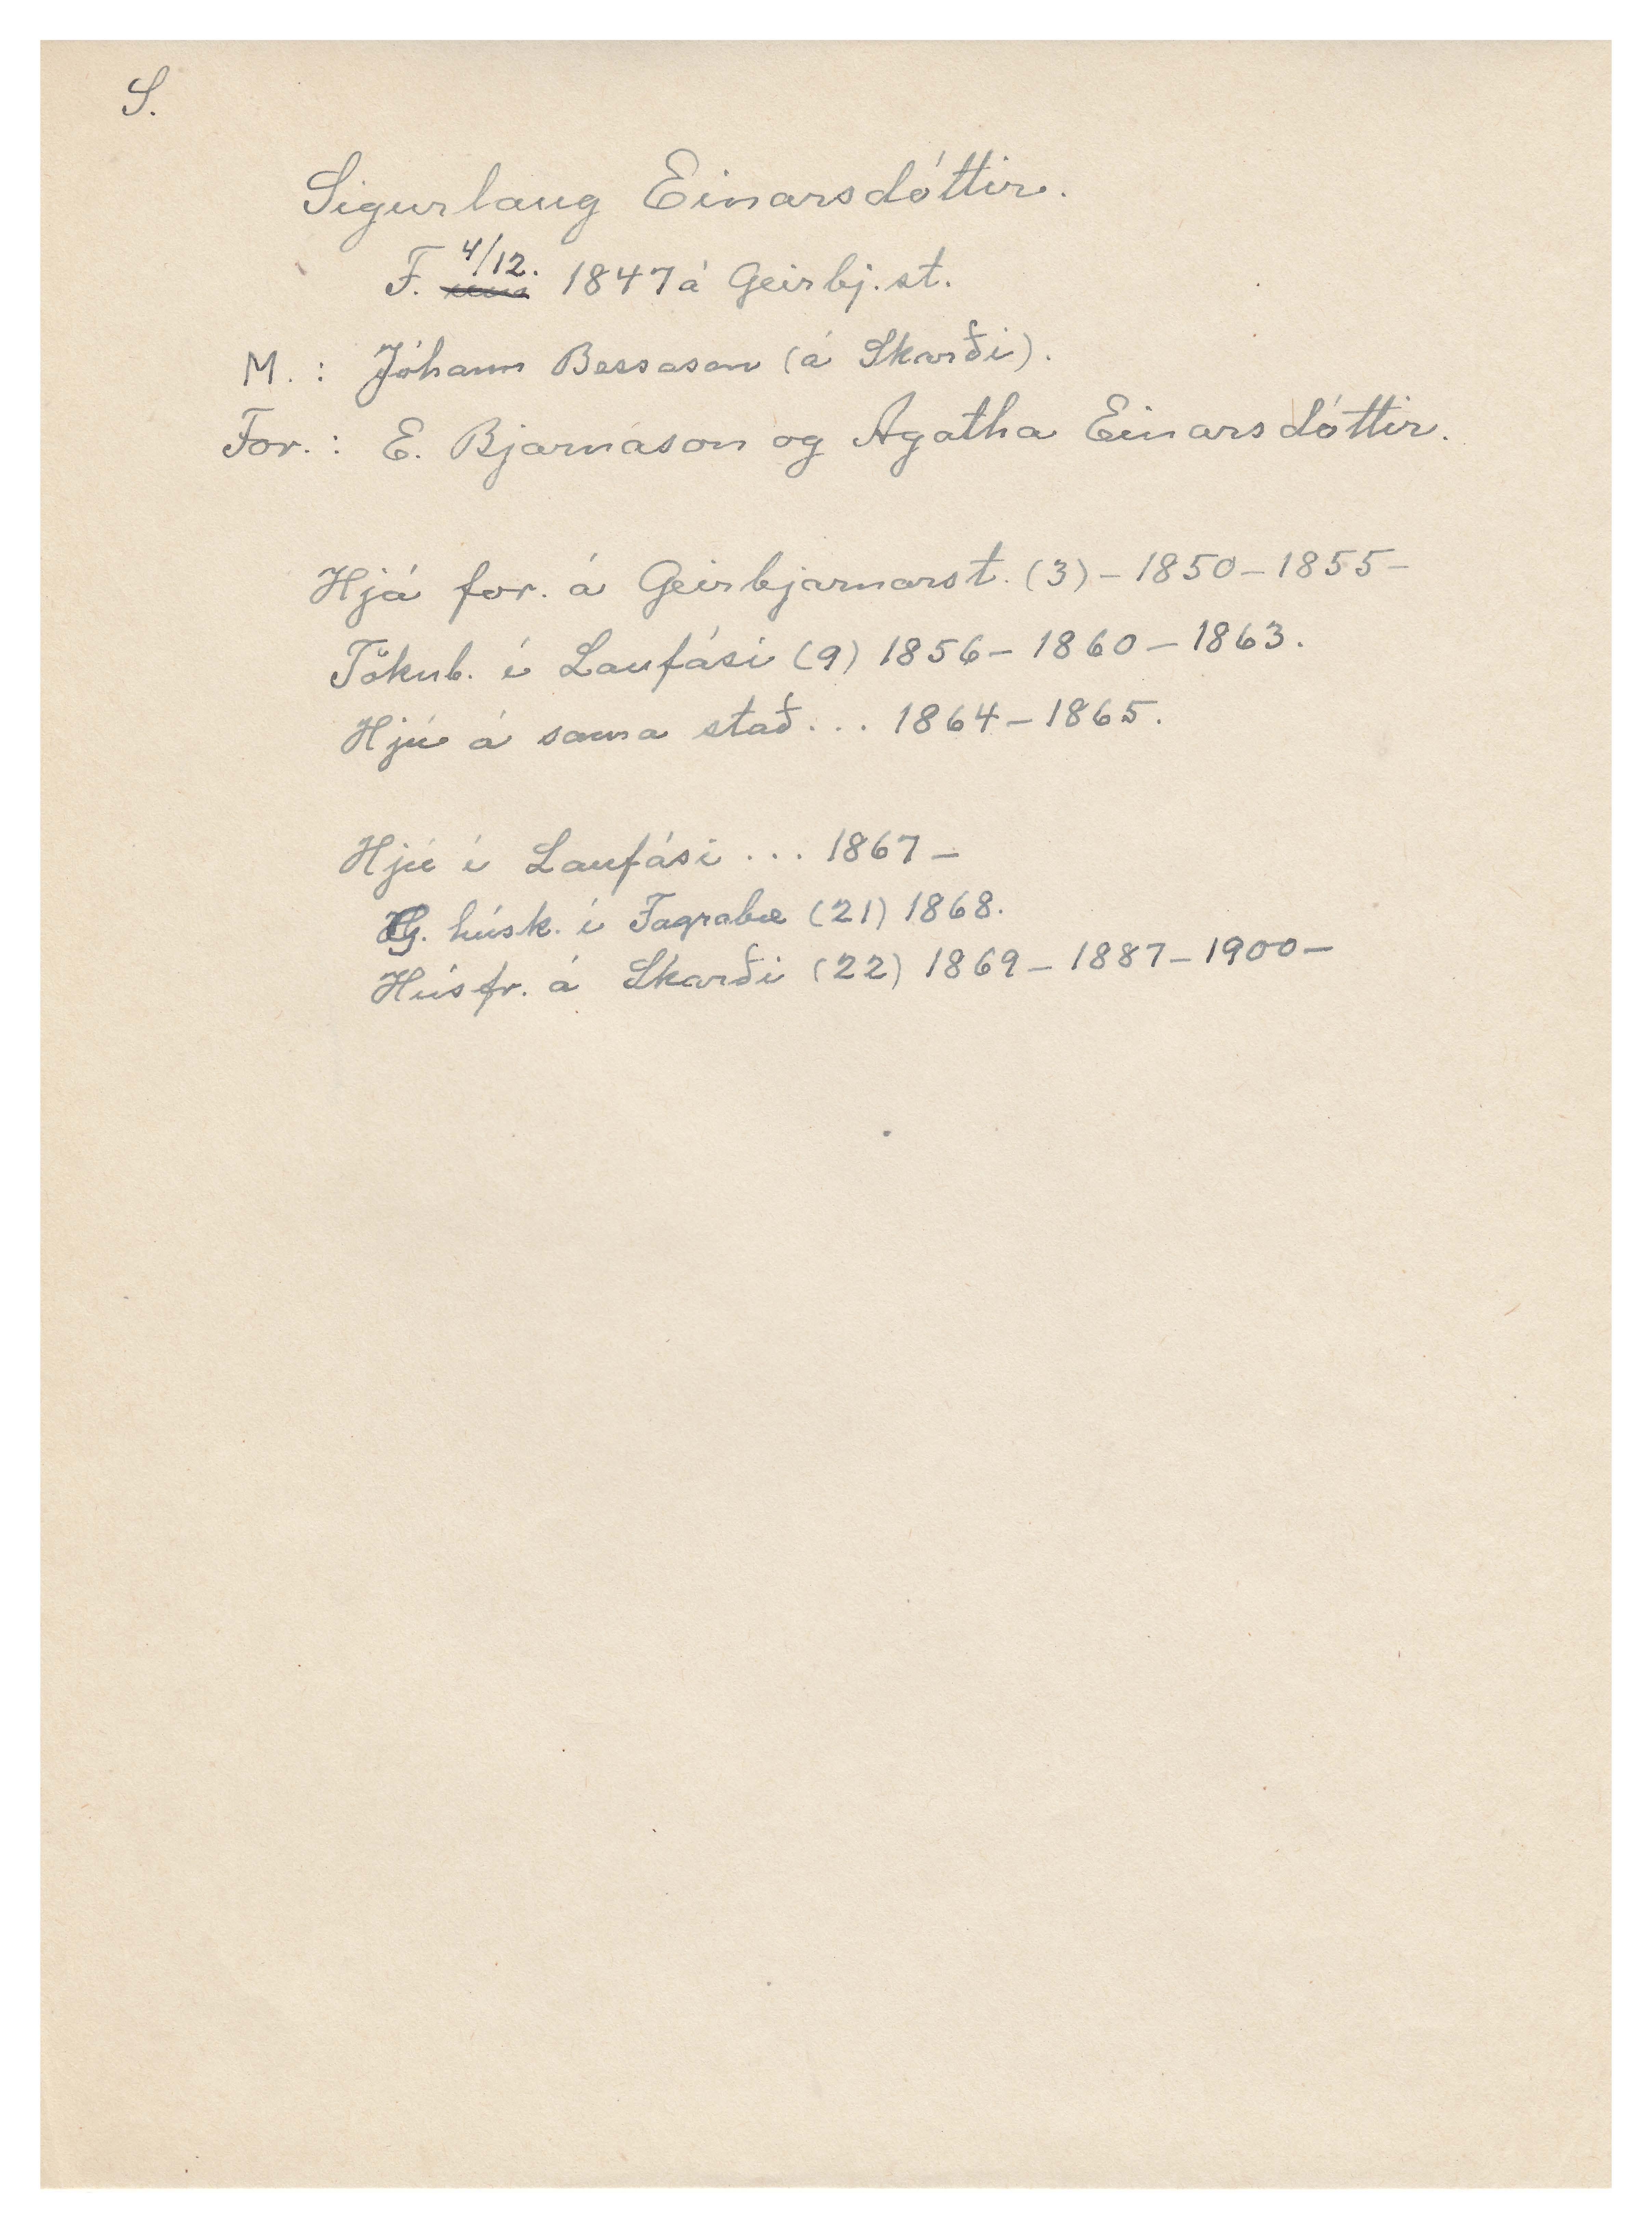 S.
Sigurlaug Einarsdóttir.
F. 4/12. 1847 á Geirbj.st.
M. : Jóhann Bessason (á Skarði).
For. : E. Bjarnason og Agatha Einarsdóttir.
Hjá for. á Geirbjarnarst. (3) - 1850 - 1855 -
Tökub. í Laufási (9) 1856 - 1860 - 1863.
Hjú á sama stað ... 1864 - 1865.
Hjú í Laufási ... 1867 -
G. húsk. í Fagrabæ (21) 1868.
Húsfr. á Skarði (22) 1869 - 1887 - 1900 -